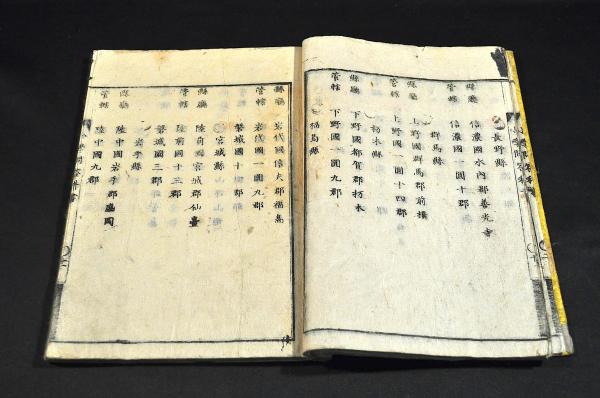 長野縣
縣廳 信濃國水內郡善光寺
管轄 信濃國一圓十郡
群馬縣
縣廳 上野國群馬郡前橋
管轄 上野國一圓十四郡
栃木縣
縣廳 下野國都賀郡栃木
管轄 下野國一圓九郡
福島縣
縣廳 岩代國信夫郡福島
管轄 岩代國一圓九郡
磐城國
宮城縣
縣廳 陸前國宮城郡仙臺
管轄 陸前國十三郡
磐城國三郡
岩手縣
縣廳 陸中國岩手郡盛岡
管轄 陸中國九郡